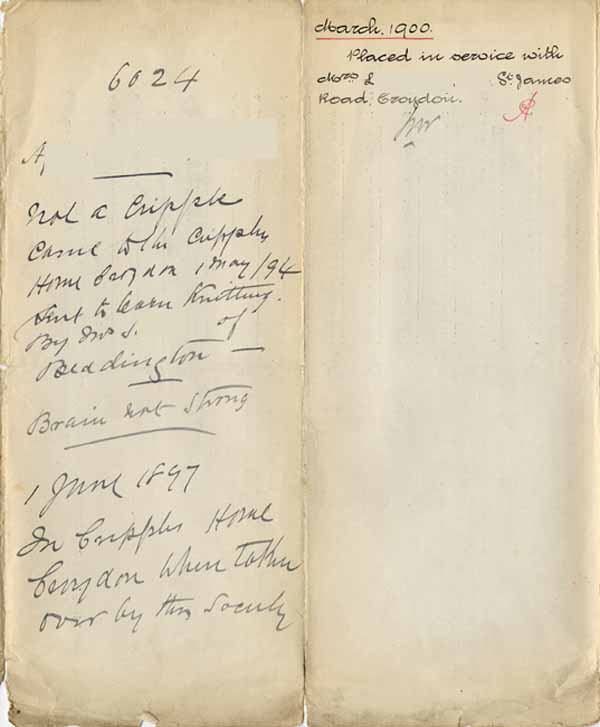 6024
A,
Not a Cripple
Came to the Cripples
Home Croydon 1 May/94
Sent to learn Knitting.
By Mrs S. of
Beddington —
Brain not Strong
1 June 1897
In Cripples Home
Croydon when taken
over by this Society
March. 1900.
Placed in service with
Mrs L St James
Road, Croydon.